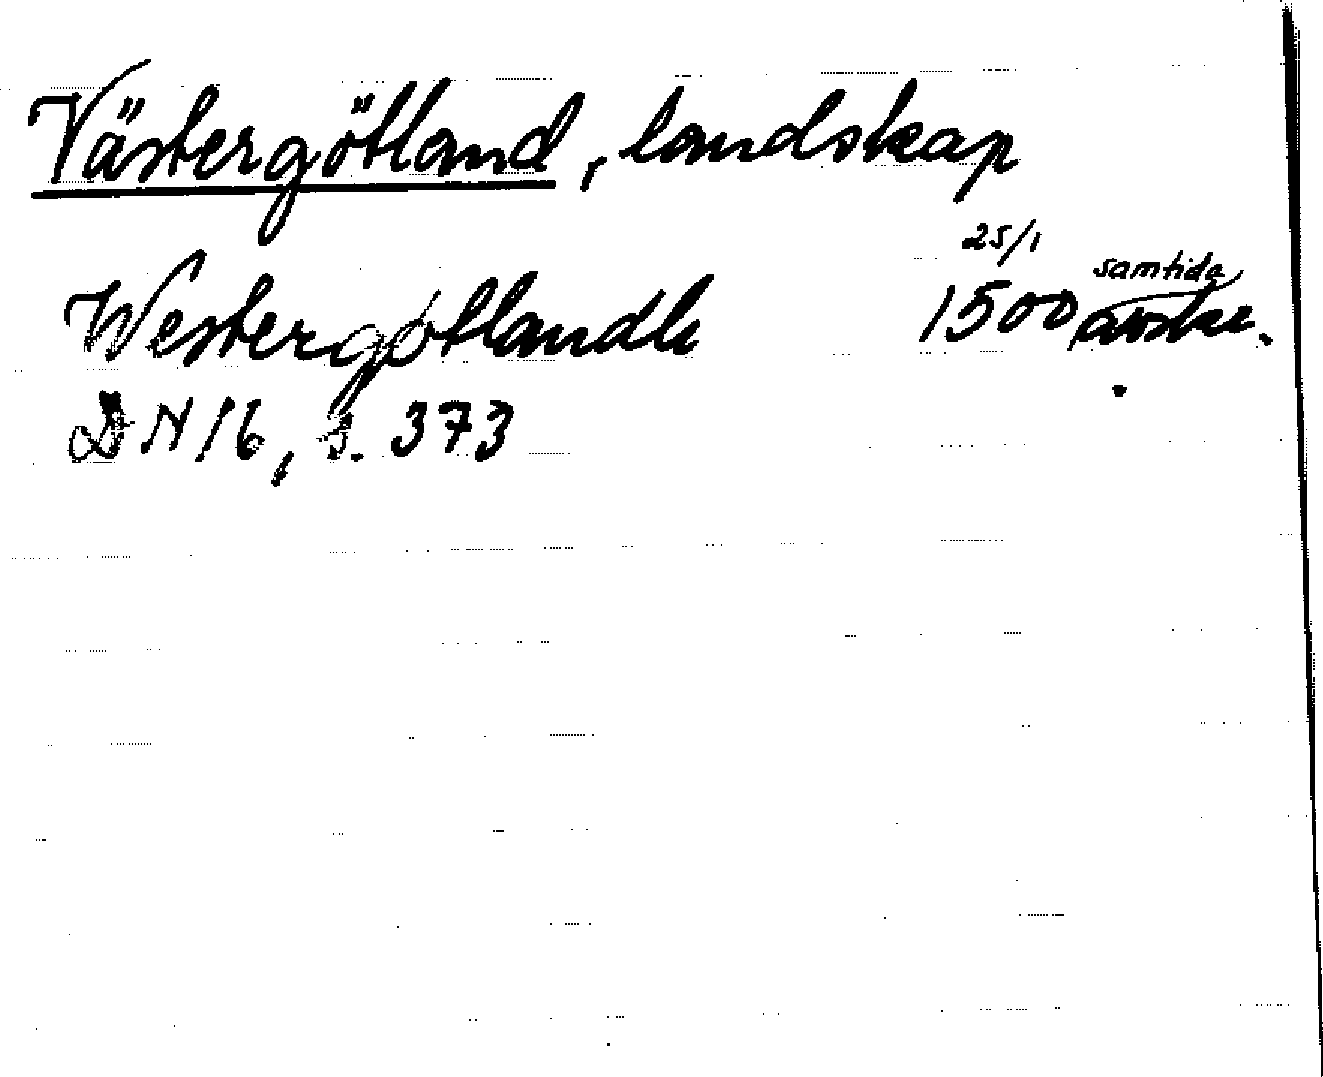 Västergötland, landskap
Westergøtlandh 25/1 1500 samtida avskr.
DN 16, s. 373